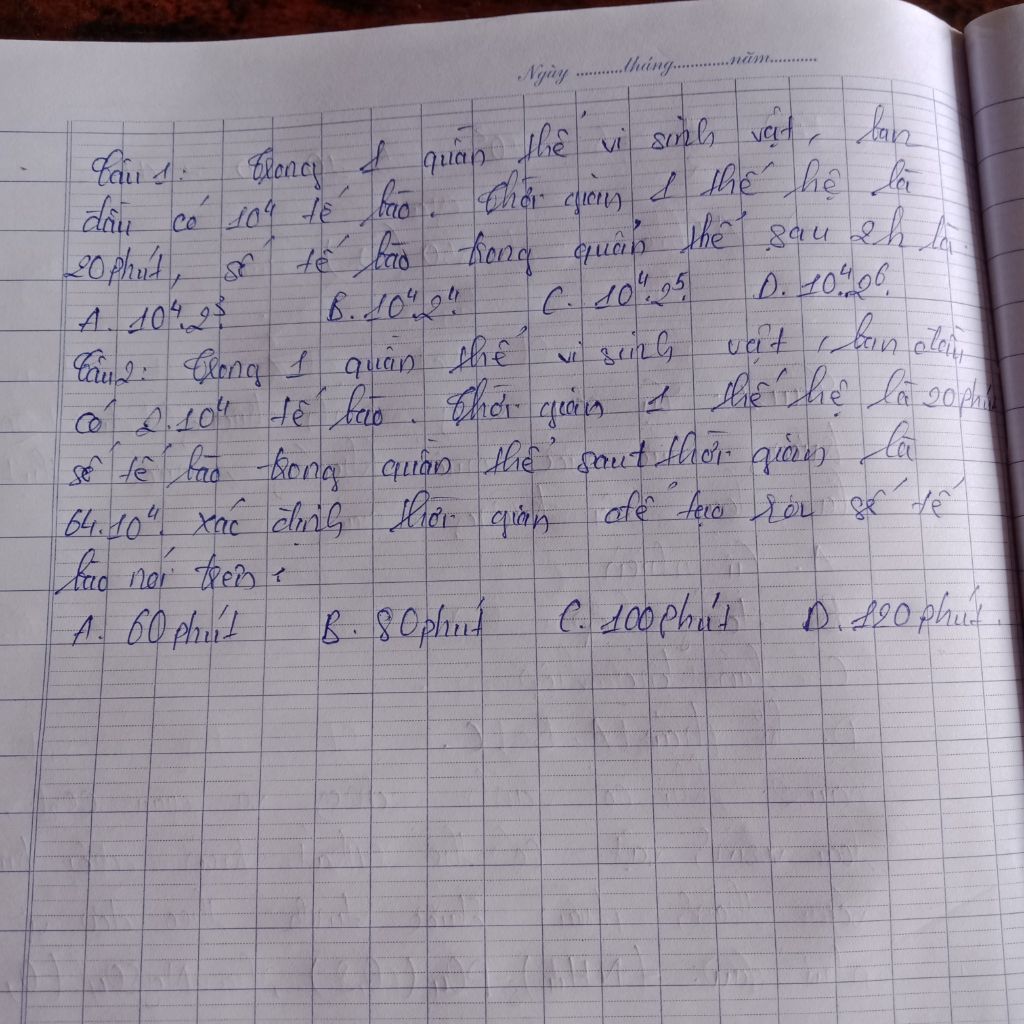 Ngày ...........tháng.............năm...........
Câu 1: Trong 1 quần thể vi sinh vật, ban
đầu có 10⁴ tế bào. Thời gian 1 thế hệ là
20phút, số tế bào trong quần thể sau 2h là
A. 10⁴.2³. B. 10⁴.2⁴. C. 10⁴.2⁵. D. 10⁴.2⁶.
Câu 2: Trong 1 quần thể vi sinh vật, ban đầu
có 2.10⁴ tế bào. Thời gian 1 thế hệ là 20phút
số tế bào trong quần thể sau t thời gian là
64.10⁴. xác định thời gian để tạo số tế
bào nói trên:
A. 60phút B. 80phút C. 100phút D. 120phút.